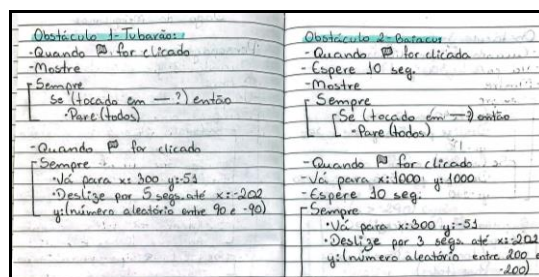 Obstáculo 1- Tubarão:
-Quando 🏳 for clicado
-Mostre
-Sempre
Se (tocado em — ?) então
•Pare (todos)
-Quando 🏳 for clicado
-Sempre
•Vá para x: 300 y:-51
•Deslize por 5 segs. até x:-202
y:(número aleatório entre 90 e -90)
Obstáculo 2- Baiacu:
-Quando 🏳 for clicada
-Espere 10 seg.
-Mostre
-Sempre
Se (tocado em —?) então
•Pare (todos)
-Quando 🏳 for clicado
-Vá para x:1000 y:1000
-Espere 10 seg.
-Sempre
•Vá para x:300 y:-51
•Deslize por 3 segs até x:-202
y:(número aleatório entre 200 e
-200)